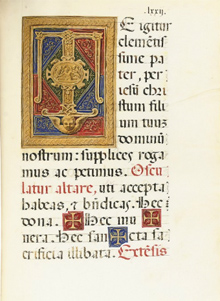 lxxij.
E igitur
clemētis
sime pa
ter, per
iesū chri
stum filiu
um tuuz
dominū
nostrum: supplices roga
mus ac petimus. Oscu
latur altare, uti accepta
habeas, et bn̄dicas. Hec
dona. Hec mu
nera. Hec san cta sa
crificia illibata. Extēsis